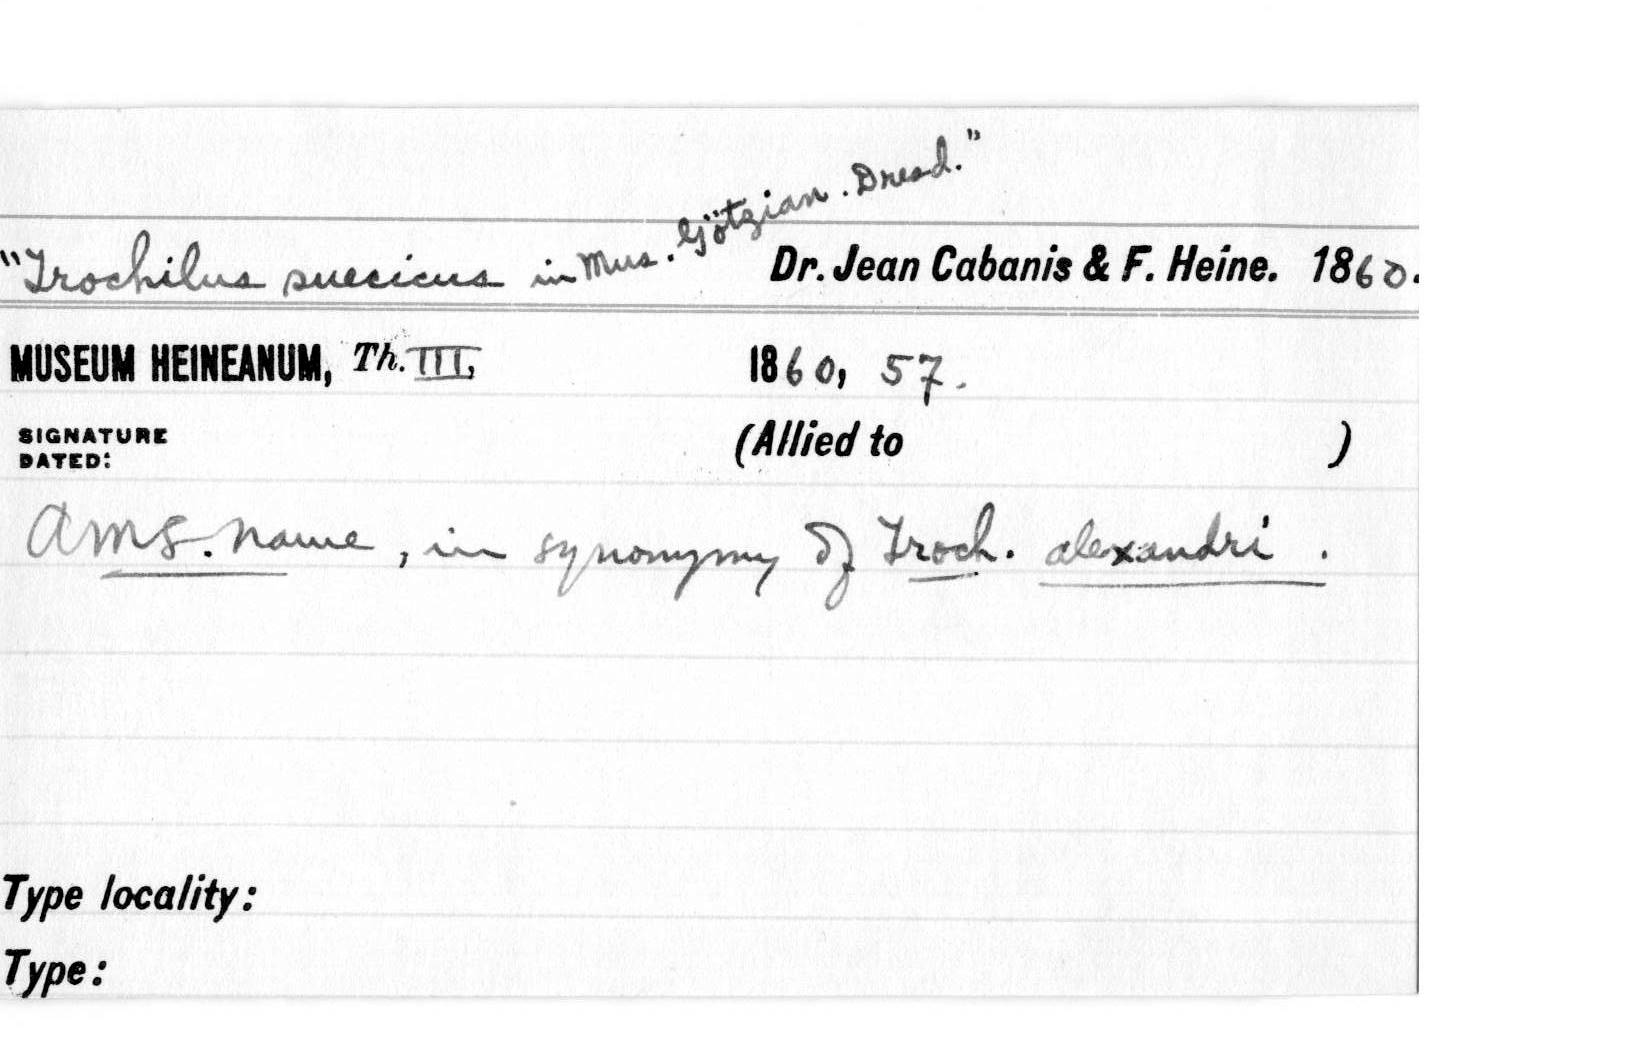 "Trochilus suecicus in Mus. Götzian. Dresd." Dr. Jean Cabanis & F. Heine. 1860.
MUSEUM HEINEANUM, Th. III, 1860, 57.
SIGNATURE DATED: (Allied to )
A MS. name, in synonymy of Troch. alexandri.
Type locality:
Type: